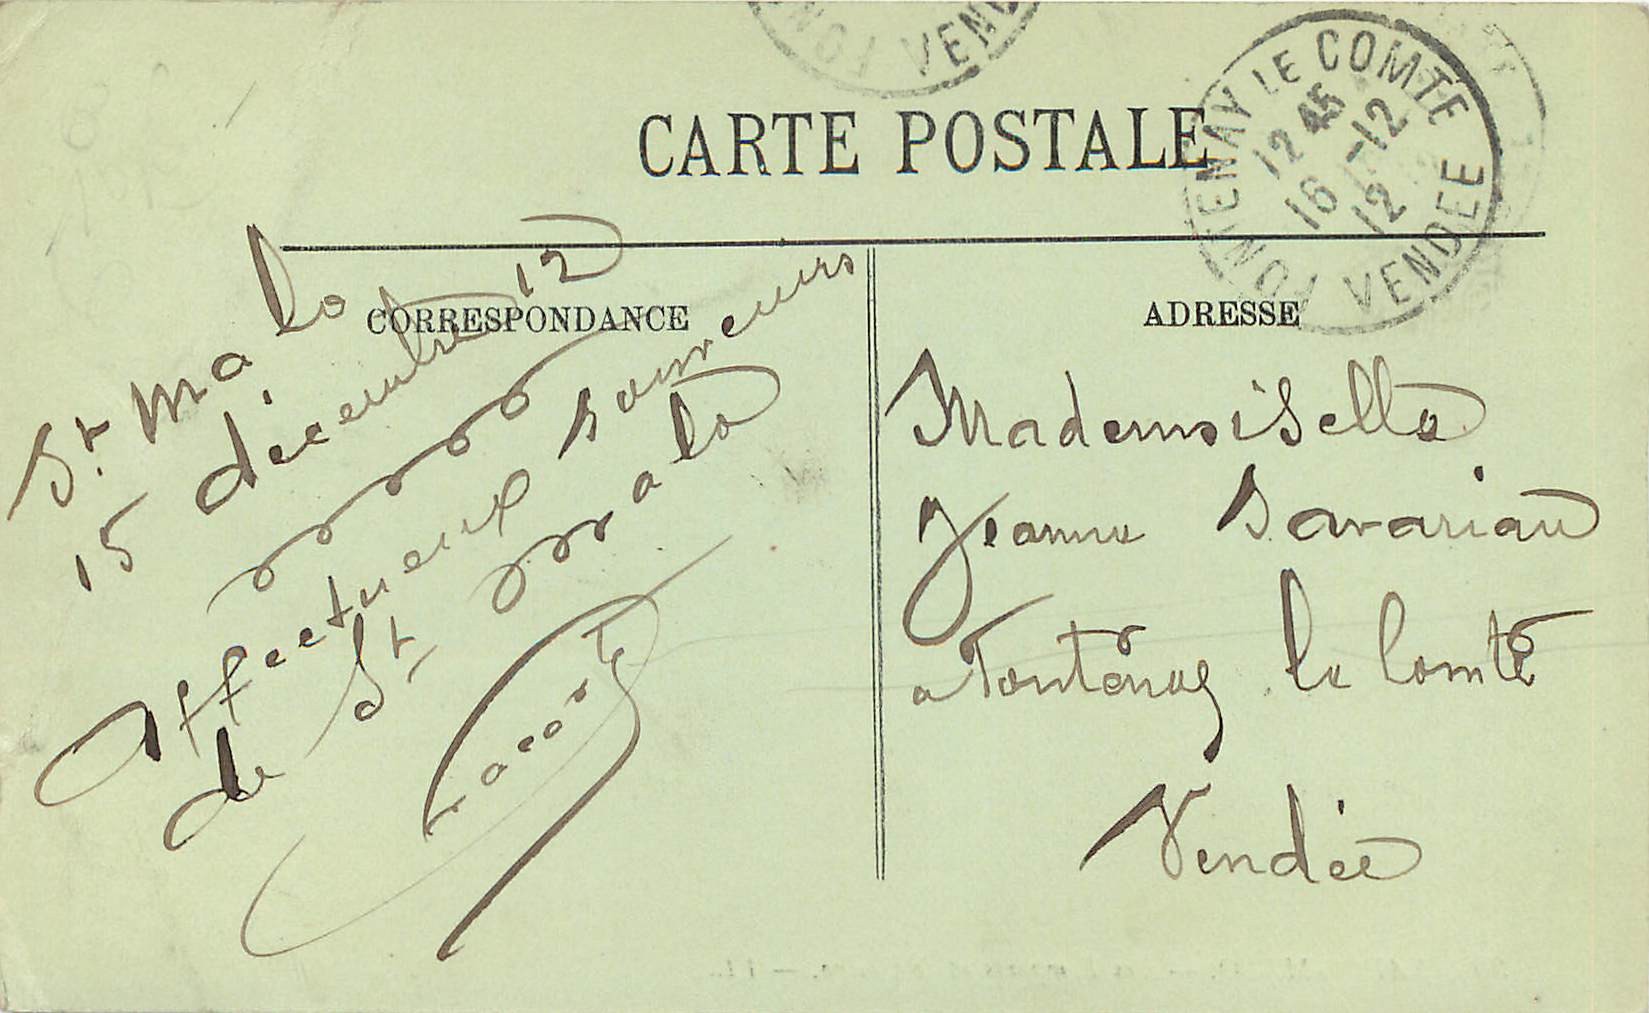 CARTE POSTALE
FONTENAY LE COMTE
12 45
16 -12
12
VENDEE
VENDEE
CORRESPONDANCE
St Malo
15 décembre 12
Affectueux souvenirs
de St Malo
ADRESSE
Mademoiselle
Jeanne Savariau
a Fontenay le Comte
Vendée